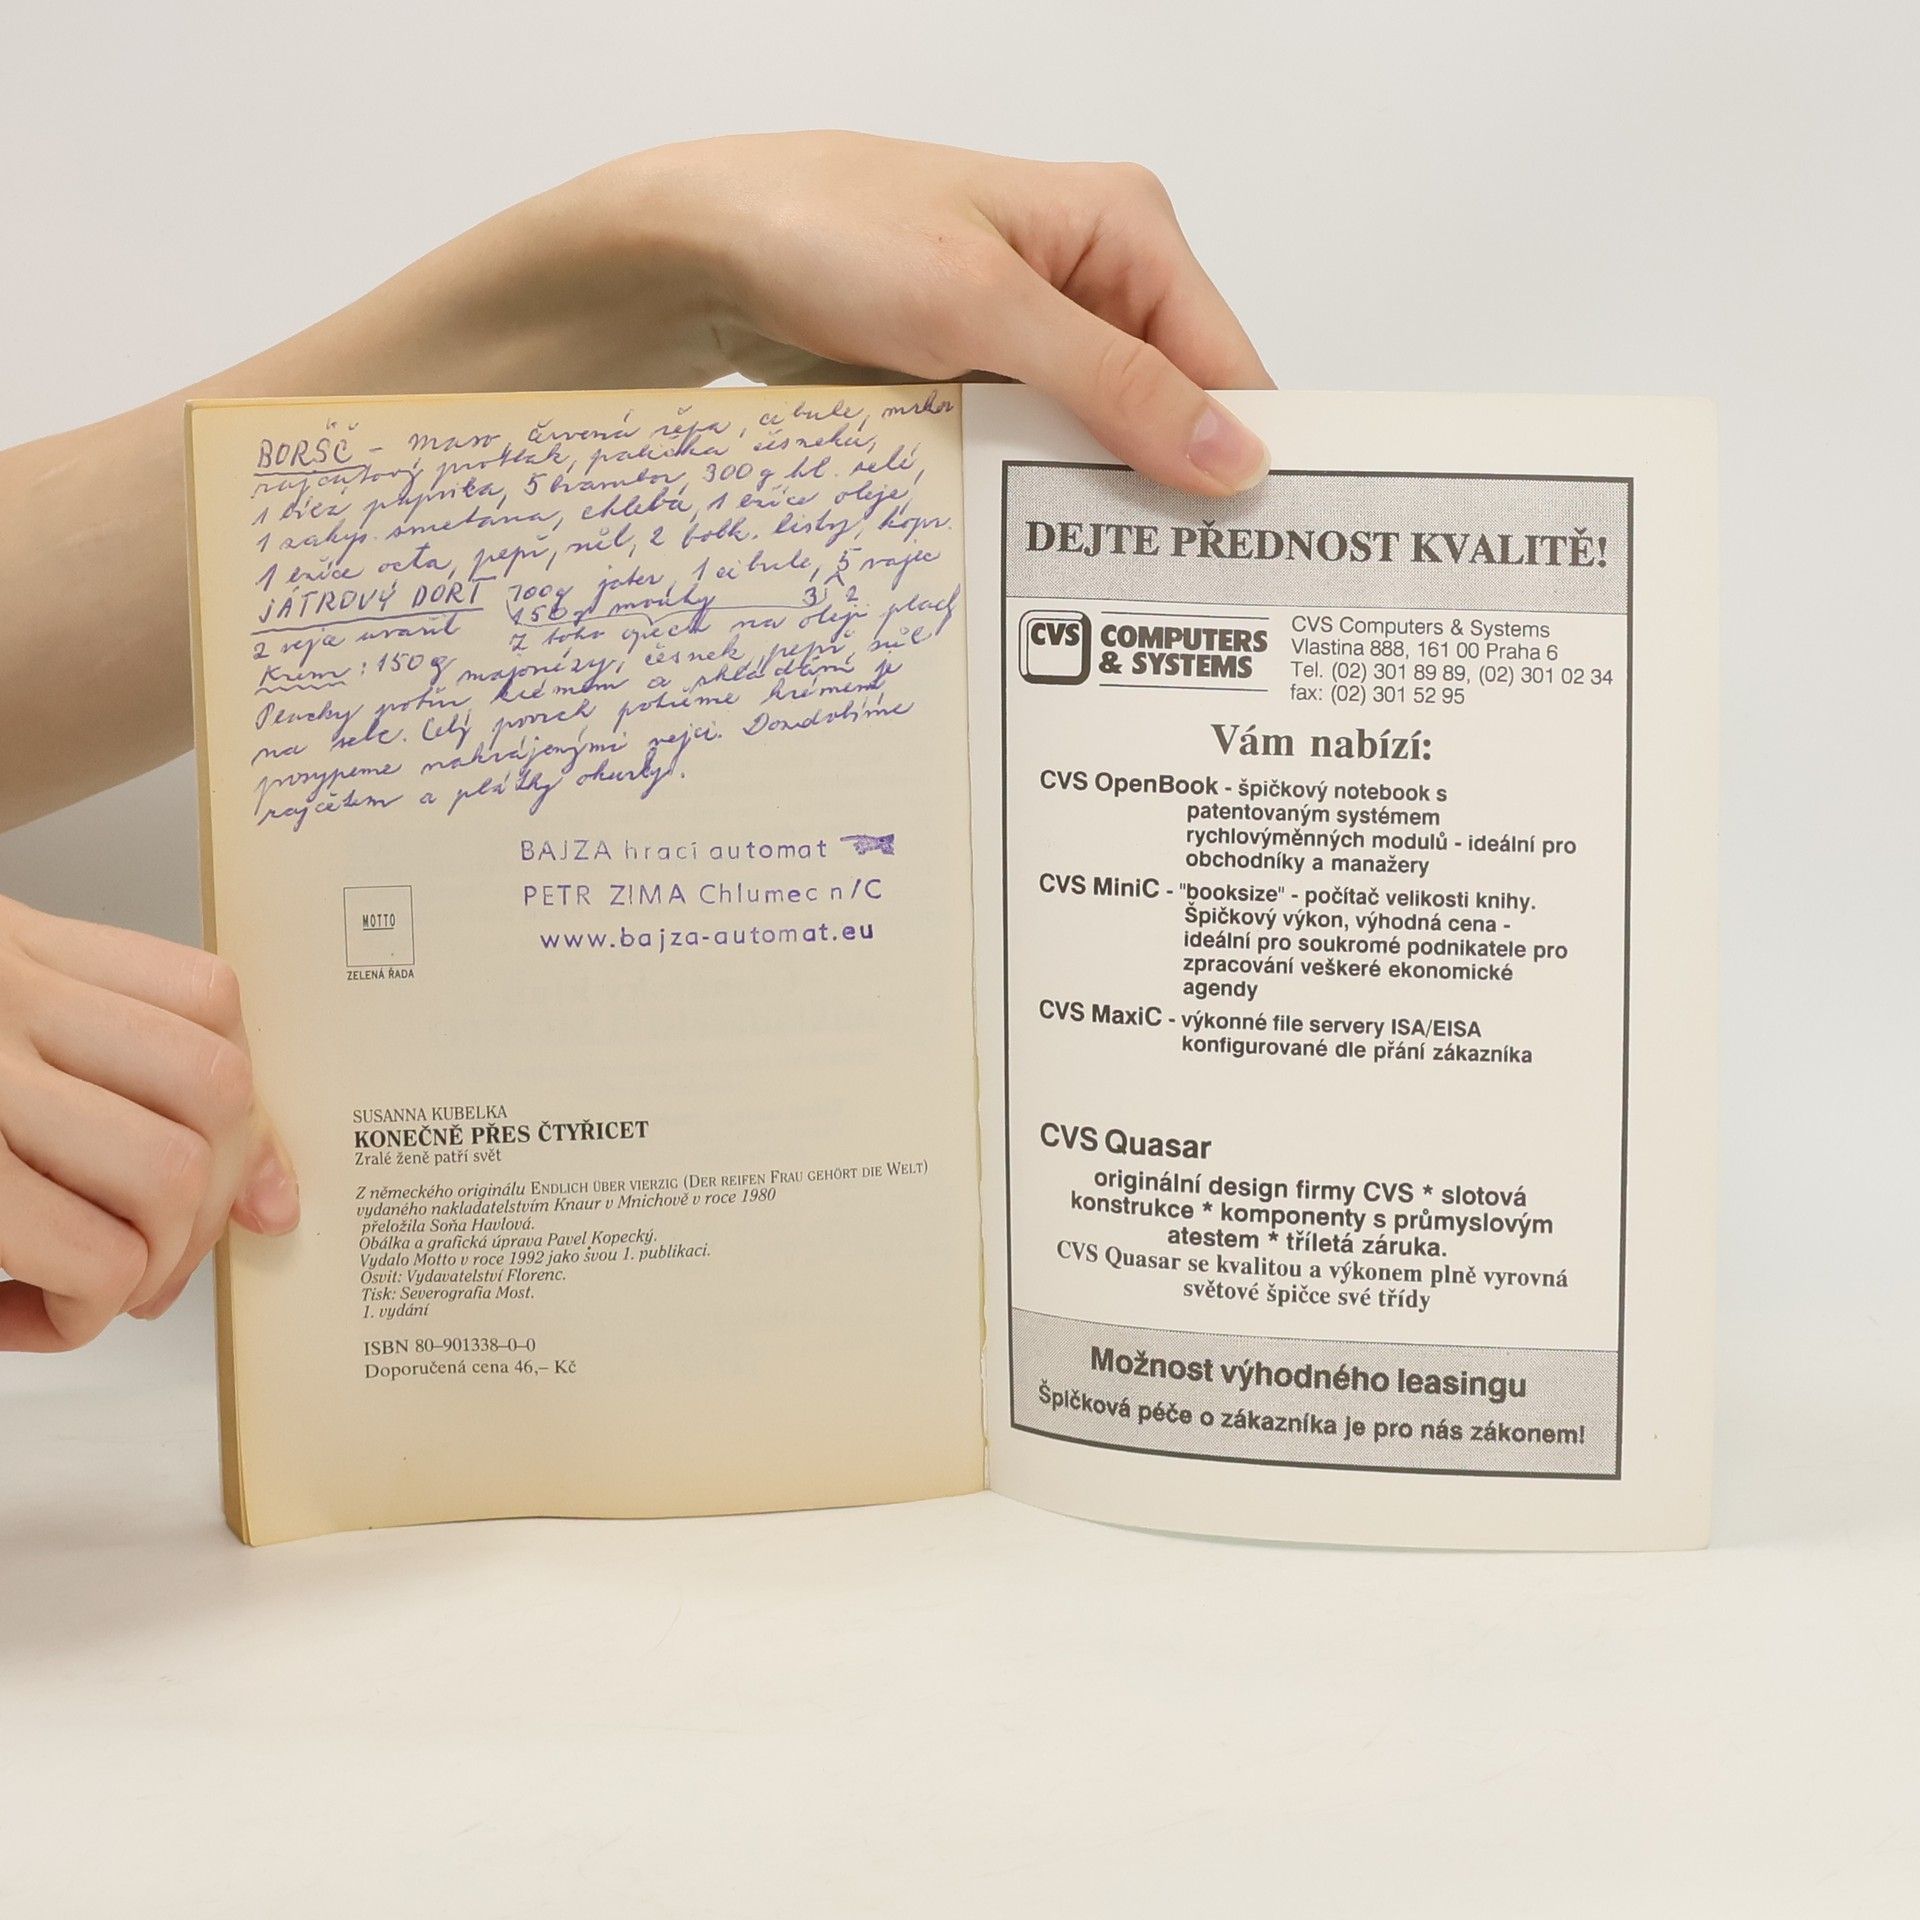 BORŠČ – maso, červená řepa, cibule, mrkev
rajčatový protlak, palička česneku,
1 paprika, 5 brambor, 300g hl. zelí,
1 zakys. smetana, chleba, 1 lžíce oleje,
1 lžíce octa, pepř, sůl, 2 bobk. listy, kopr.
JÁTROVÝ DORT 700g jater, 1 cibule, 5 vajec
150g mouky 3 2
2 vejce uvařit z toho na oleji
Krém: 150g majonézy, česnek, pepř, sůl
Placky krémem a skládáme je
na sebe. Celý povrch potřeme krémem,
posypeme nakrájenými vejci. Dozdobíme
rajčetem a plátky okurky.
BAJZA hrací automat
PETR ZIMA Chlumec n/C
www.bajza-automat.eu
MOTTO
ZELENÁ ŘADA
SUSANNA KUBELKA
KONEČNĚ PŘES ČTYŘICET
Zralé ženě patří svět
Z německého originálu ENDLICH ÜBER VIERZIG (DER REIFEN FRAU GEHÖRT DIE WELT)
vydaného nakladatelstvím Knaur v Mnichově v roce 1980
přeložila Soňa Havlová.
Obálka a grafická úprava Pavel Kopecký.
Vydalo Motto v roce 1992 jako svou 1. publikaci.
Osvit: Vydavatelství Florenc.
Tisk: Severografia Most.
1. vydání
ISBN 80–901338–0–0
Doporučená cena 46,– Kč
DEJTE PŘEDNOST KVALITĚ!
CVS COMPUTERS
& SYSTEMS
CVS Computers & Systems
Vlastina 888, 161 00 Praha 6
Tel. (02) 301 89 89, (02) 301 02 34
fax: (02) 301 52 95
Vám nabízí:
CVS OpenBook - špičkový notebook s
patentovaným systémem
rychlovýměnných modulů - ideální pro
obchodníky a manažery
CVS MiniC - "booksize" - počítač velikosti knihy.
Špičkový výkon, výhodná cena -
ideální pro soukromé podnikatele pro
zpracování veškeré ekonomické
agendy
CVS MaxiC - výkonné file servery ISA/EISA
konfigurované dle přání zákazníka
CVS Quasar
originální design firmy CVS * slotová
konstrukce * komponenty s průmyslovým
atestem * tříletá záruka.
CVS Quasar se kvalitou a výkonem plně vyrovná
světové špičce své třídy
Možnost výhodného leasingu
Špičková péče o zákazníka je pro nás zákonem!